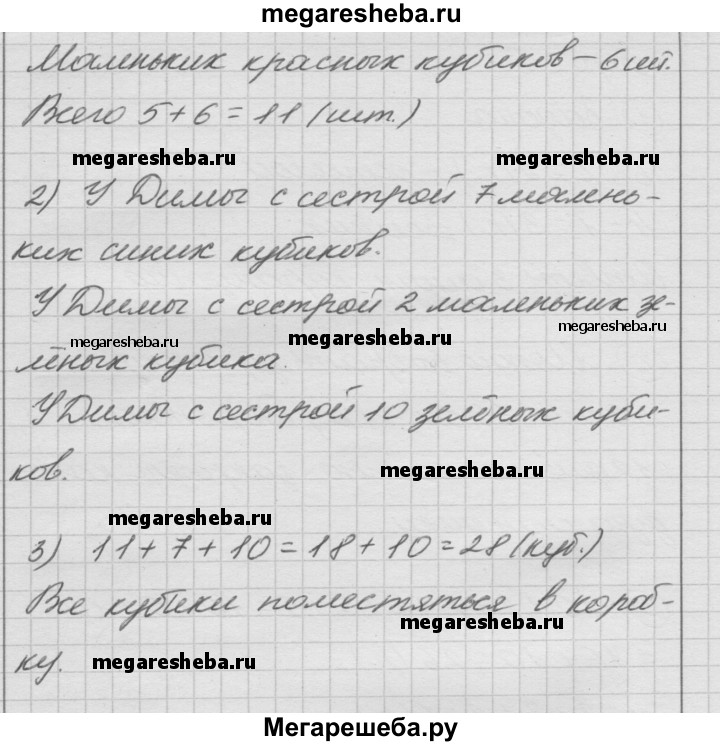 megaresheba.ru
Маленьких красных кубиков – 6 шт.
Всего 5 + 6 = 11 (шт.)
megaresheba.ru megaresheba.ru
2) У Димы с сестрой 7 малень-
ких синих кубиков.
У Димы с сестрой 2 маленьких зе-
megaresheba.ru megaresheba.ru megaresheba.ru
лёных кубика.
У Димы с сестрой 10 зелёных куби-
ков.
megaresheba.ru
megaresheba.ru
3) 11 + 7 + 10 = 18 + 10 = 28 (куб.)
Все кубики поместяться в короб-
megaresheba.ru
ку.
megaresheba.ru
Мегарешеба.ру